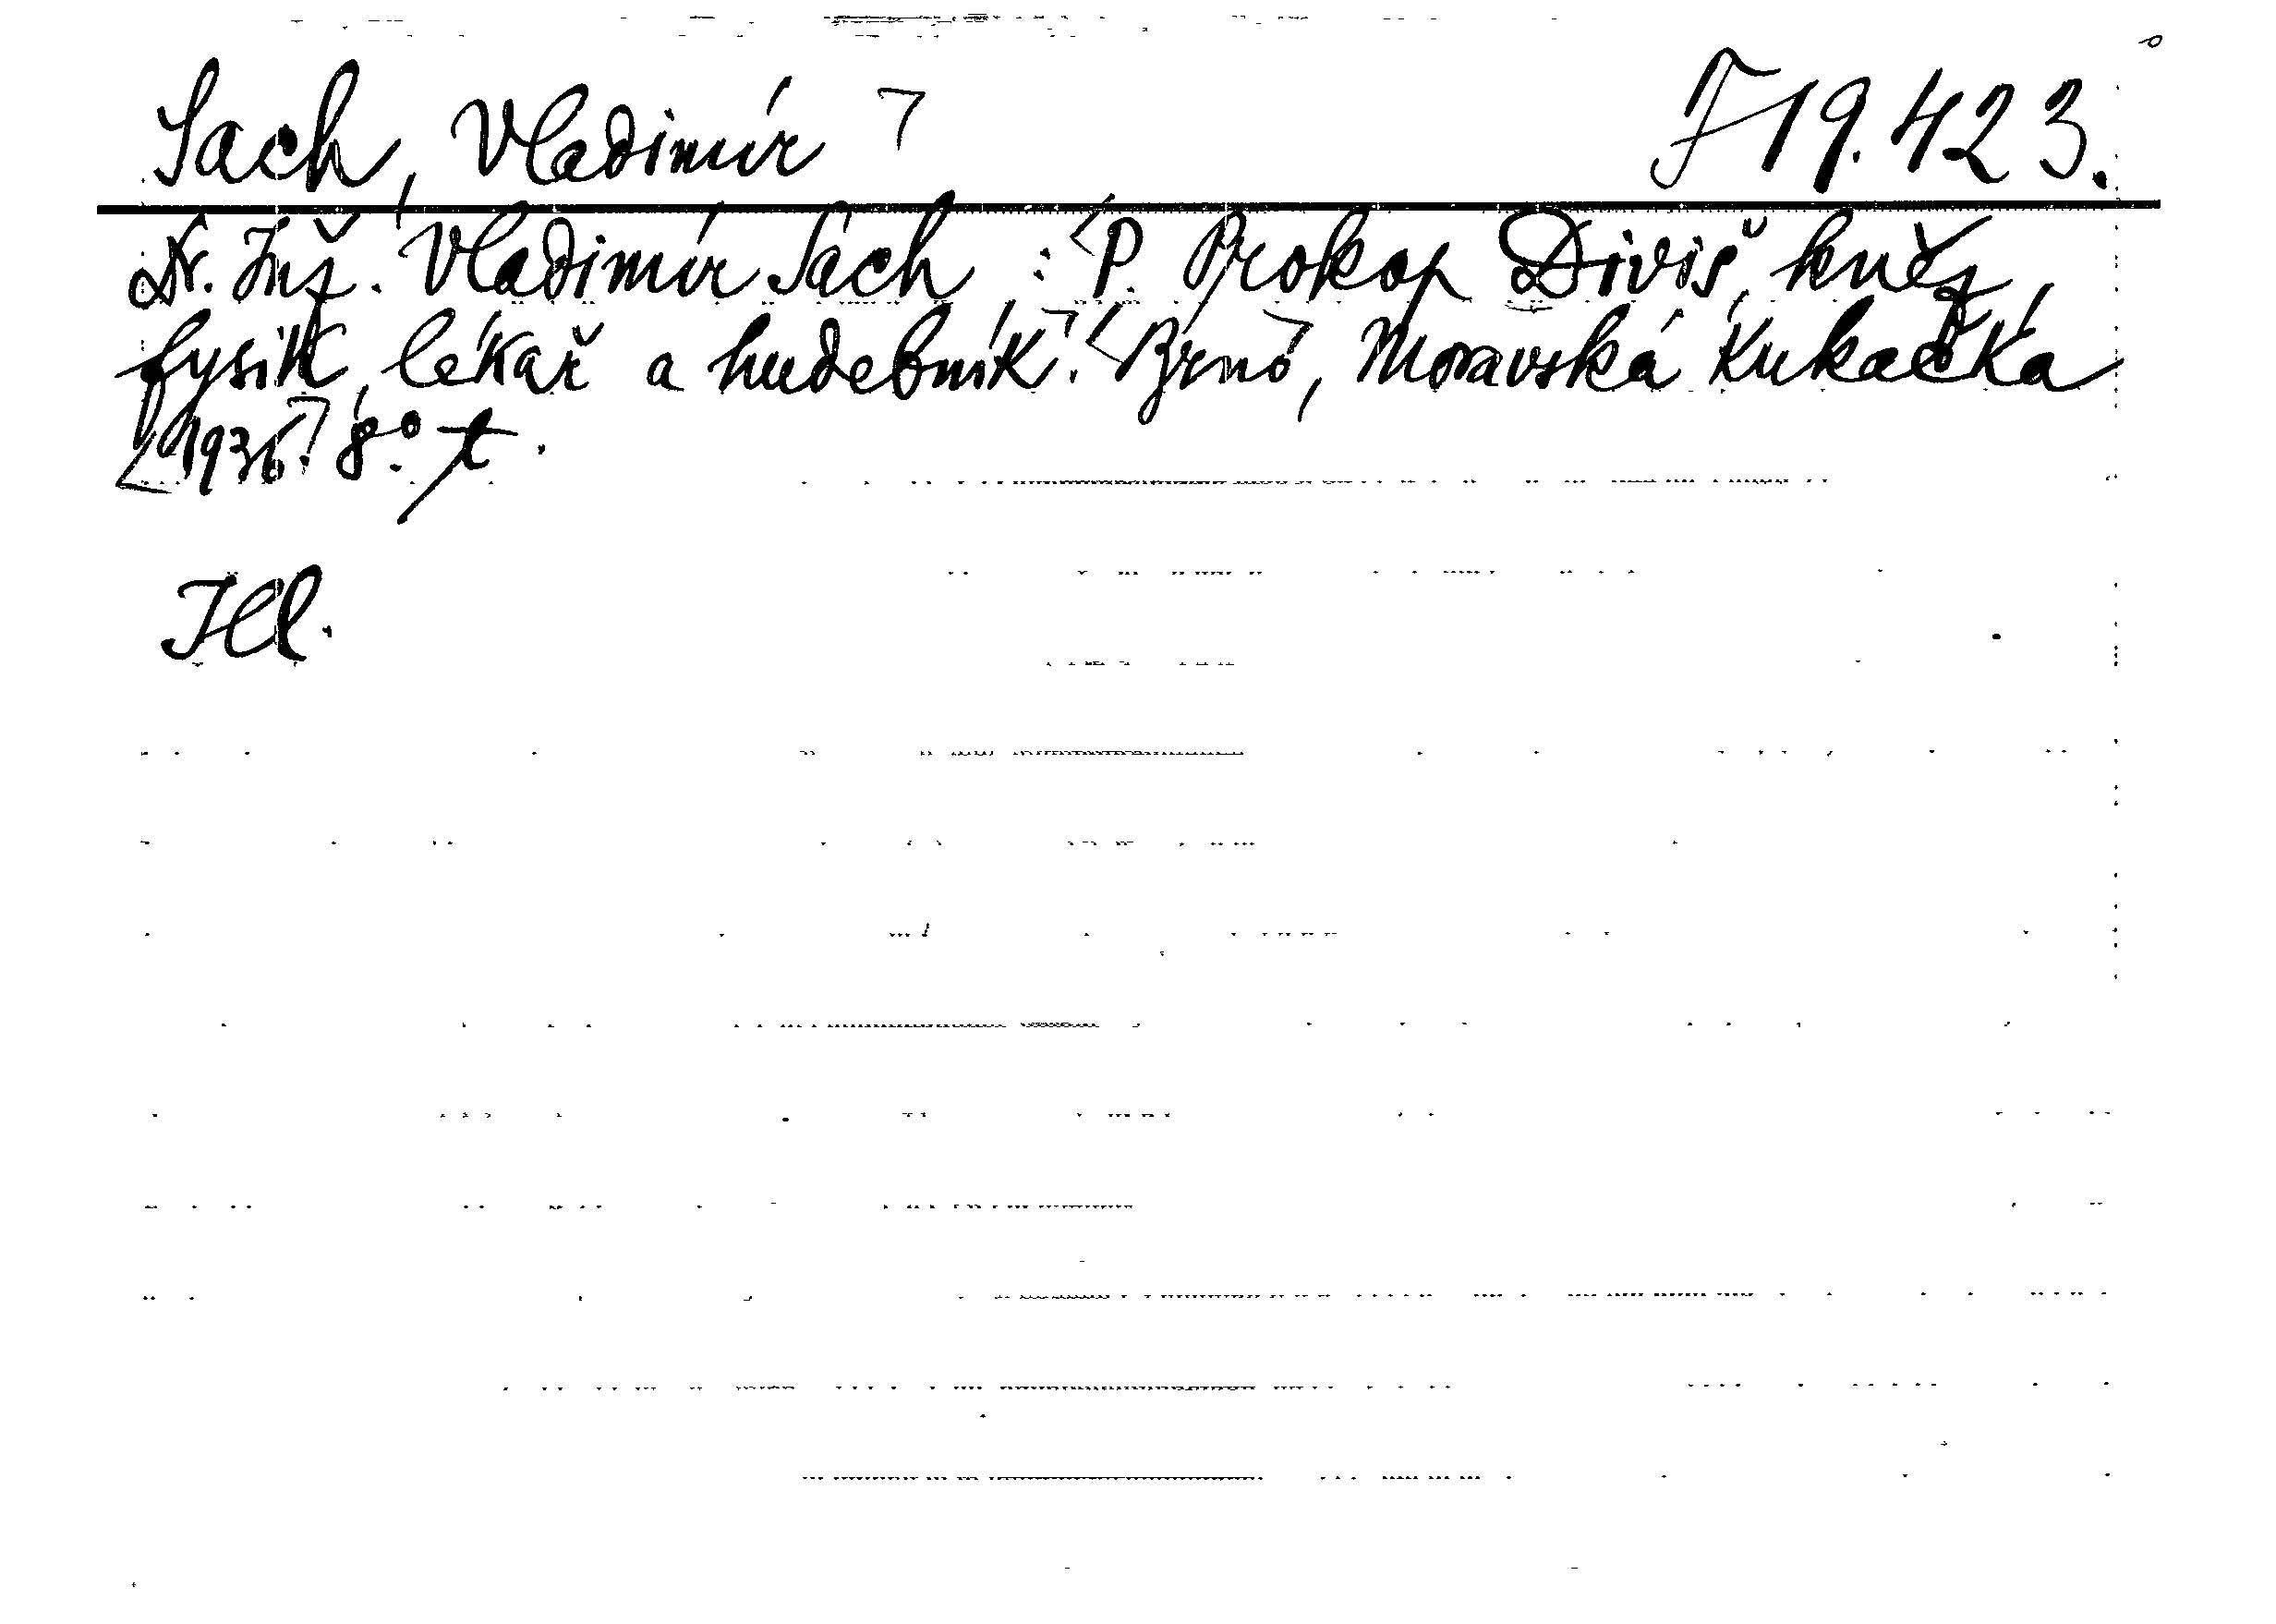 Sach, Vladimír J 19.423.
Dr. Inž. Vladimír Sach : P. Prokop Diviš, kněz,
fysik, lékař a hudebník. Brno, Moravská Kukačka
1936. 8°. t.
Ill.